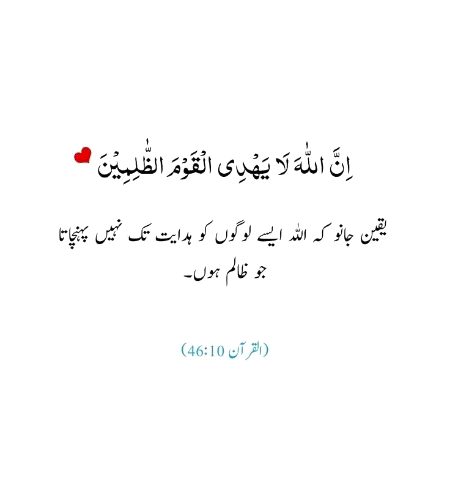 اِنَّ اللّٰهَ لَا يَهْدِى الْقَوْمَ الظّٰلِمِيْنَ
یقین جانو کہ اللہ ایسے لوگوں کو ہدایت تک نہیں پہنچاتا
جو ظالم ہوں۔
(القرآن 46:10)